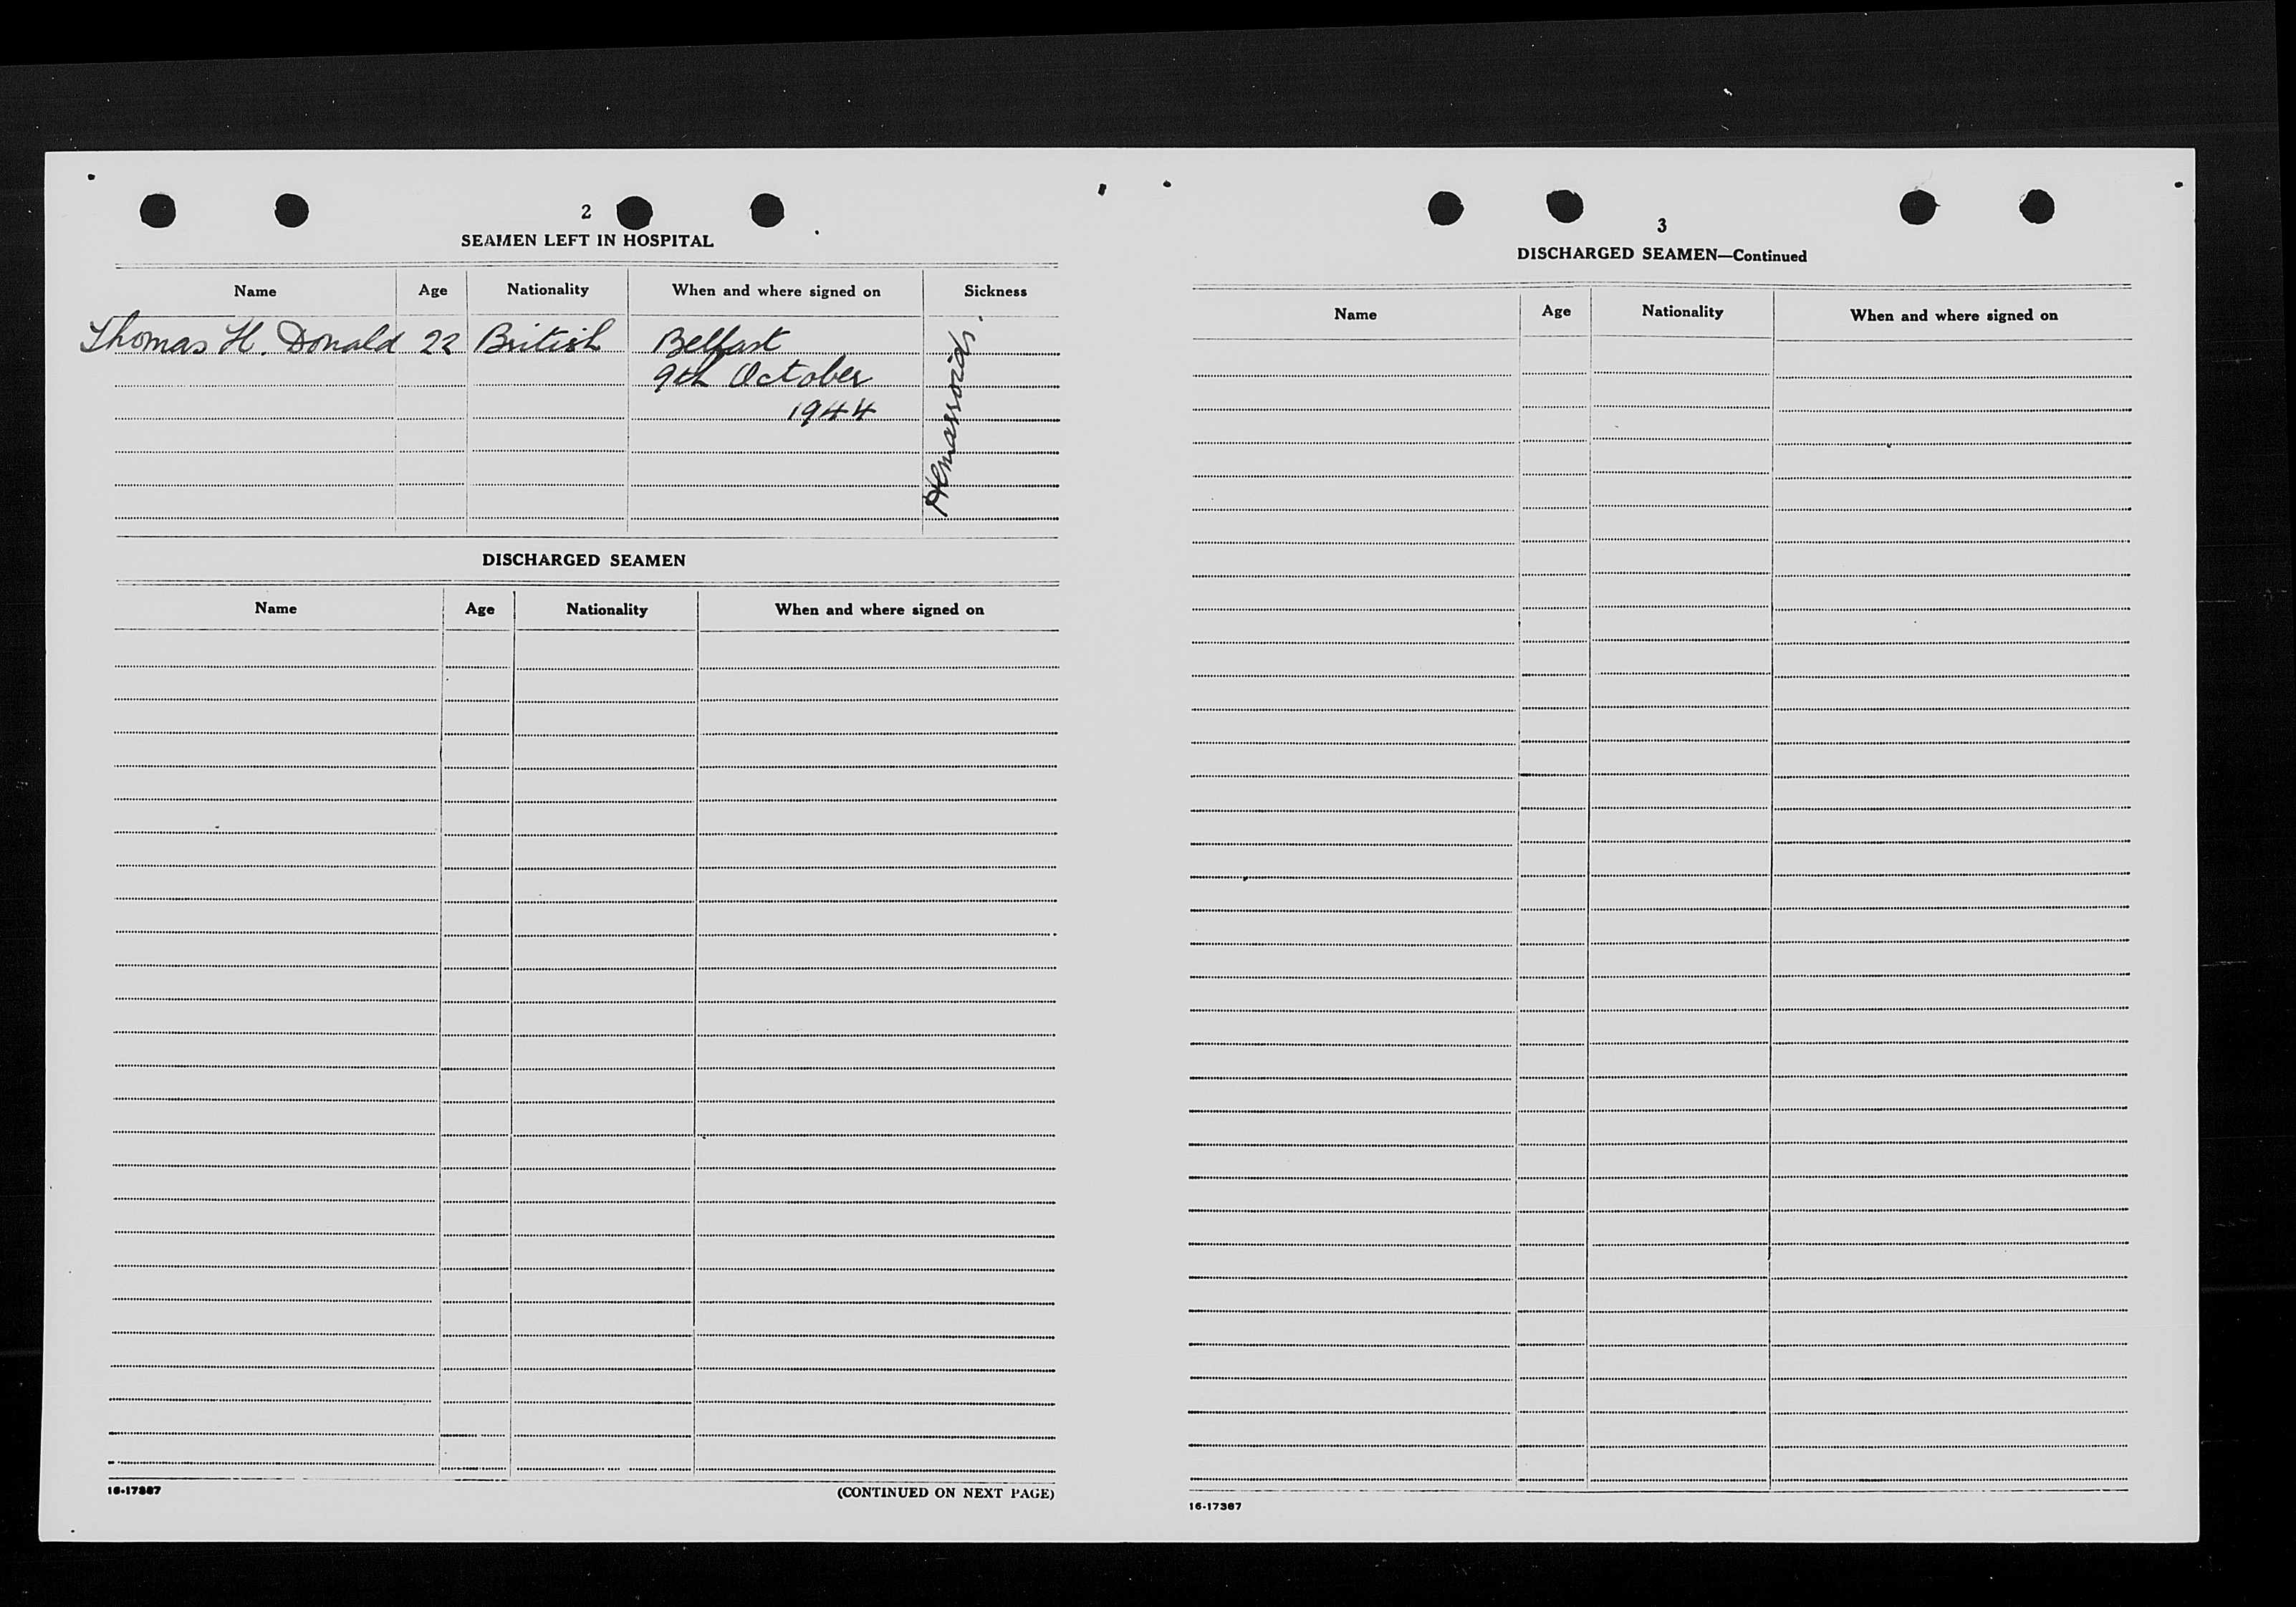 2
SEAMEN LEFT IN HOSPITAL
Name Age Nationality When and where signed on Sickness
Thomas H. Donald 22 British Belfast
9th October
1944
Hemarroids.
DISCHARGED SEAMEN
Name Age Nationality When and where signed on
16-17387
(CONTINUED ON NEXT PAGE)
3
DISCHARGED SEAMEN—Continued
Name Age Nationality When and where signed on
16-17387